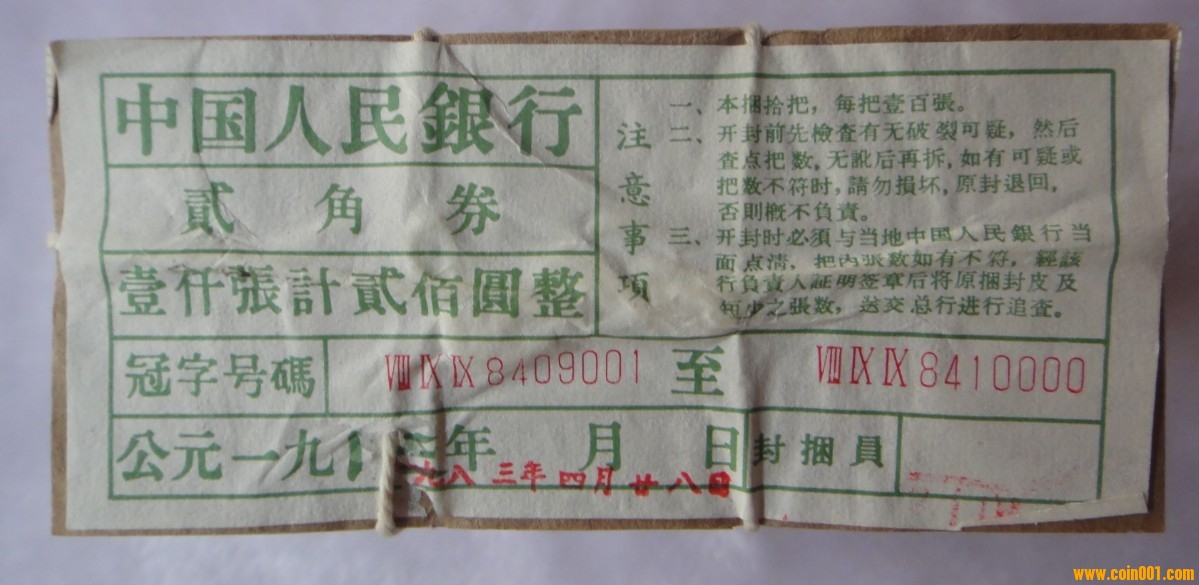 中国人民銀行
貳角券
壹仟張計貳佰圓整
注意事項
一、本捆拾把，每把壹百張。
二、开封前先檢査有无破裂可疑，然后
査点把数，无訛后再拆，如有可疑或
把数不符时，請勿損坏，原封退回，
否則概不負責。
三、开封时必須与当地中国人民銀行当
面点清，把内張数如有不符，經該
行負責人証明签章后将原捆封皮及
短少之張数，送交总行进行追査。
冠字号碼 ⅧⅨⅨ8409001 至 ⅧⅨⅨ8410000
公元一九 年 月 日 封捆員
九八三年四月廿八日
www.coin001.com